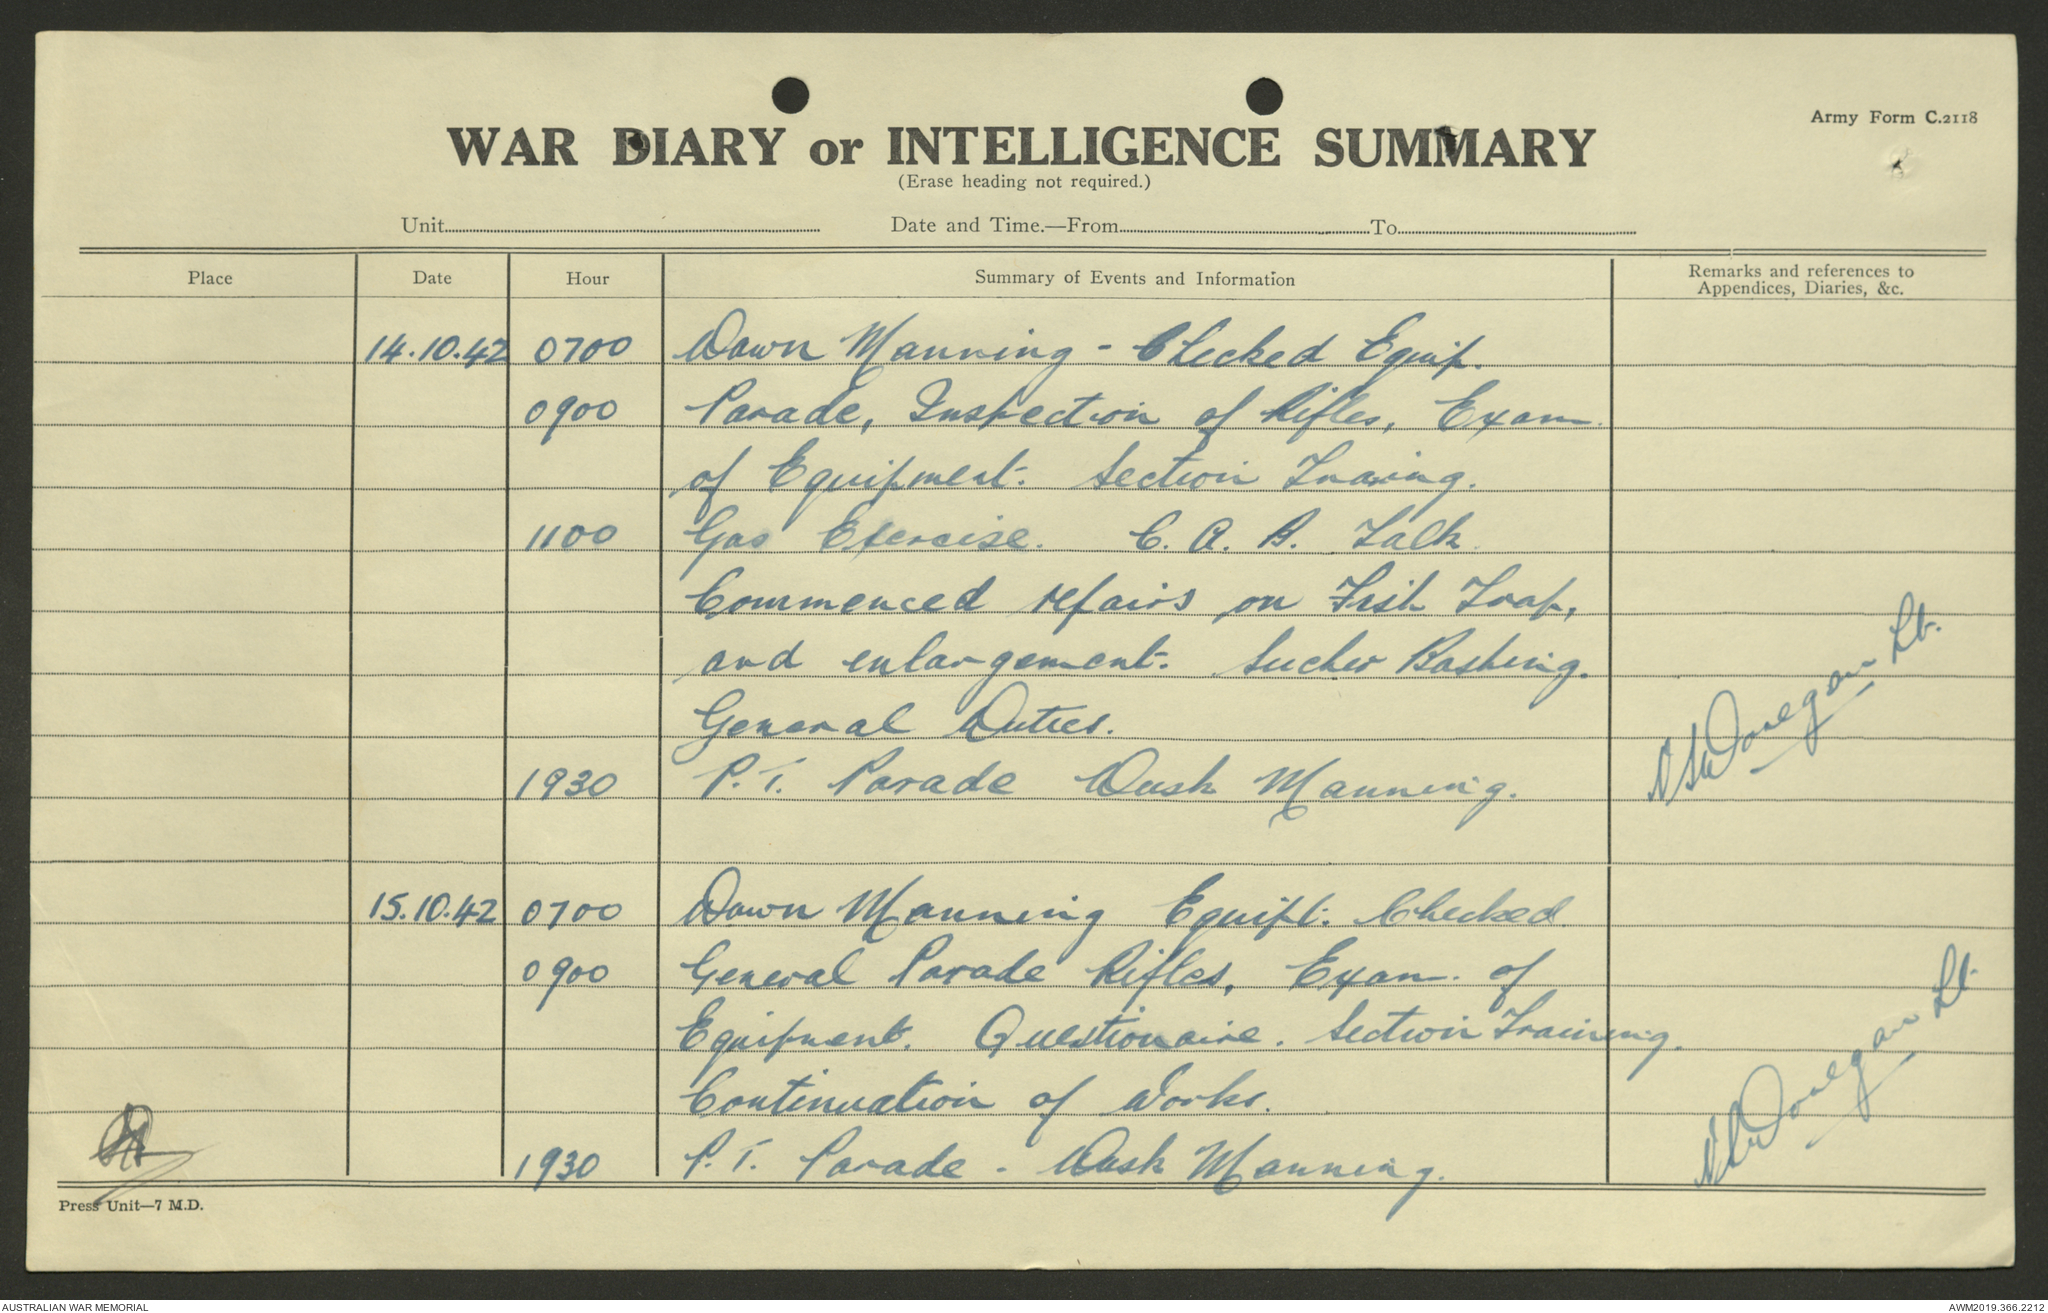 Army Form C.2118
WAR DIARY or INTELLIGENCE SUMMARY
(Erase heading not required.)
Unit Date and Time.—From To
Place Date Hour Summary of Events and Information Remarks and references to
Appendices, Diaries, &c.
14.10.42 0700 Dawn Manning - Checked Equip.
0900 Parade, Inspection of Rifles, Exam.
of Equipment. Section Traing.
1100 Gas Exercise. C. A. B. Talk
Commenced repairs on Fish Trap,
and enlargement. Sucker Bashing.
General Duties.
1930 P.T. Parade Dusk Manning.
Donegan Lt.
15.10.42 0700 Dawn Manning Equipt. Checked.
0900 General Parade Rifles, Exam. of
Equipment. Questionaire. Section Training.
Continuation of Works.
1930 P.T. Parade - Dusk Manning.
Donegan Lt.
Press Unit—7 M.D.
AUSTRALIAN WAR MEMORIAL AWM2019.366.2212